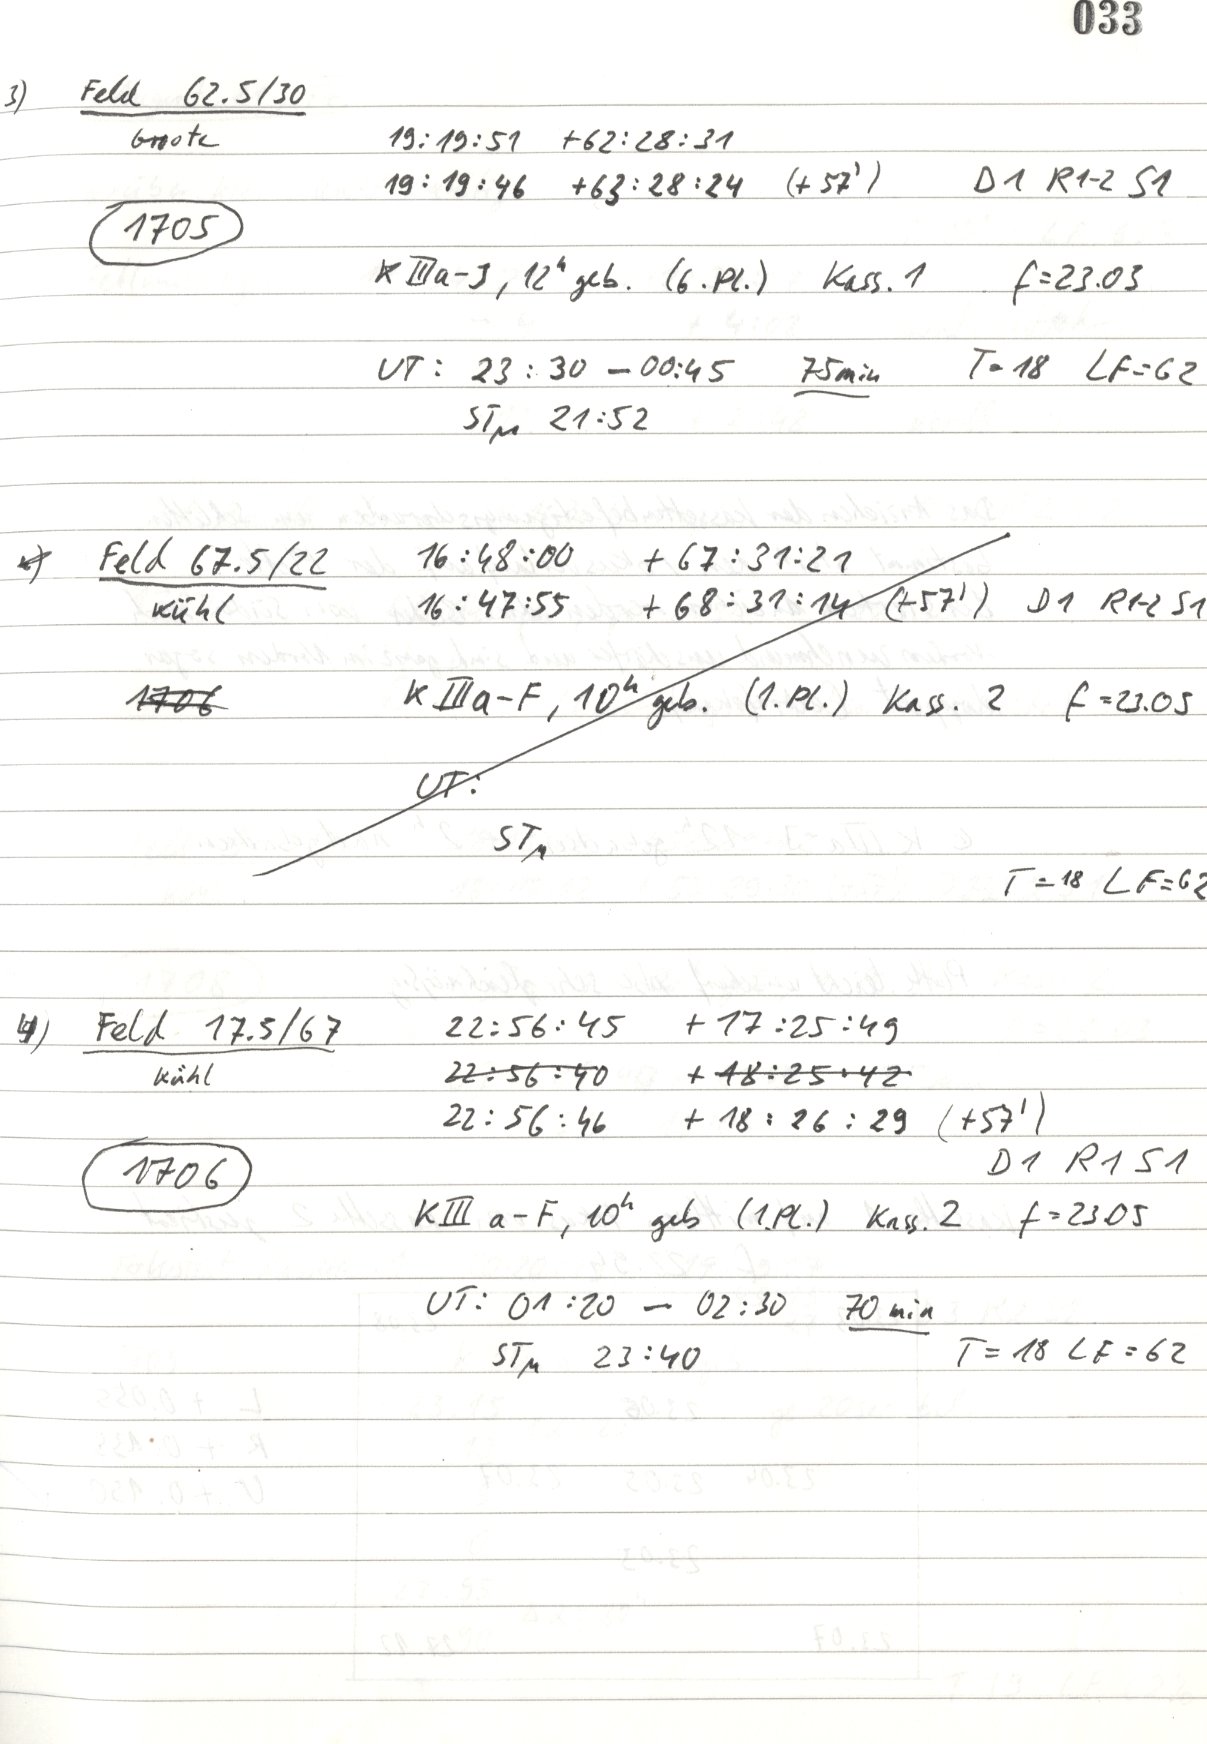 033
3) Feld 62.5/30
Groote 19:19:51 +62:28:31
19:19:46 +63:28:24 (+57') D1 R1-2 S1
1705
K IIIa-J, 12h geb. (6.Pl.) Kass. 1 f=23.03
UT: 23:30 – 00:45 75min T=18 LF=62
STM 21:52
Feld 67.5/22 16:48:00 +67:31:21
Kühl 16:47:55 +68:31:14 (+57') D1 R1-2 S1
1706 K IIIa-F, 10h geb. (1.Pl.) Kass. 2 f=23.05
UT:
STM
T=18 LF=62
4) Feld 17.5/67 22:56:45 +17:25:49
Kühl 22:56:40 +18:25:42
22:56:46 +18:26:29 (+57')
D1 R1 S1
1706
K III a-F, 10h geb (1.Pl.) Kass. 2 f=23.05
UT: 01:20 – 02:30 70 min
STM 23:40 T=18 LF=62